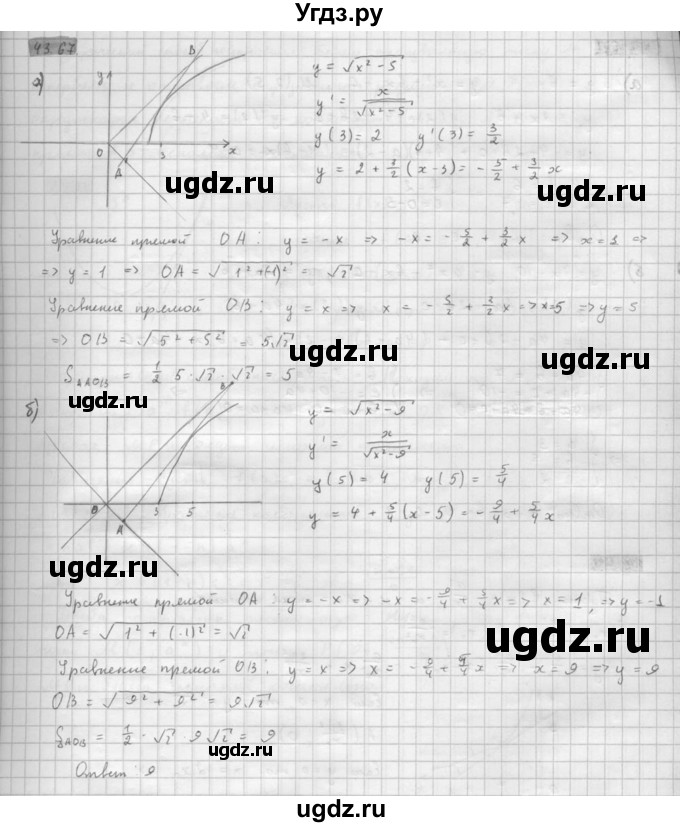 Угдз.ру
43.67
а) y B
y = √(x² − 5)
y' = x/√(x² − 5)
y(3) = 2 y'(3) = 3/2
O 3 x
A
y = 2 + 3/2 (x − 3) = − 5/2 + 3/2 x
ugdz.ru ugdz.ru
Уравнение прямой OA : y = −x => −x = − 5/2 + 3/2 x => x = 1 =>
=> y = 1 => OA = √(1² + (−1)²) = √2
ugdz.ru
Уравнение прямой OB : y = x => x = − 5/2 + 3/2 x => x = 5 => y = 5
=> OB = √(5² + 5²) = 5√2
ugdz.ru ugdz.ru
S△AOB = 1/2 · 5 · √2 · √2 = 5
ugdz.ru
б) B
y = √(x² − 9)
y' = x/√(x² − 9)
y(5) = 4 y(5) = 5/4
O 3 5
A
y = 4 + 5/4 (x − 5) = − 9/4 + 5/4 x
ugdz.ru
Уравнение прямой OA : y = −x => −x = − 9/4 + 5/4 x => x = 1, => y = −1
OA = √(1² + (−1)²) = √2
ugdz.ru ugdz.ru
Уравнение прямой OB : y = x => x = − 9/4 + 5/4 x => x = 9 => y = 9
OB = √(9² + 9²) = 9√2
ugdz.ru
S△AOB = 1/2 · √2 · 9√2 = 9
ugdz.ru
Ответ: 9
ugdz.ru